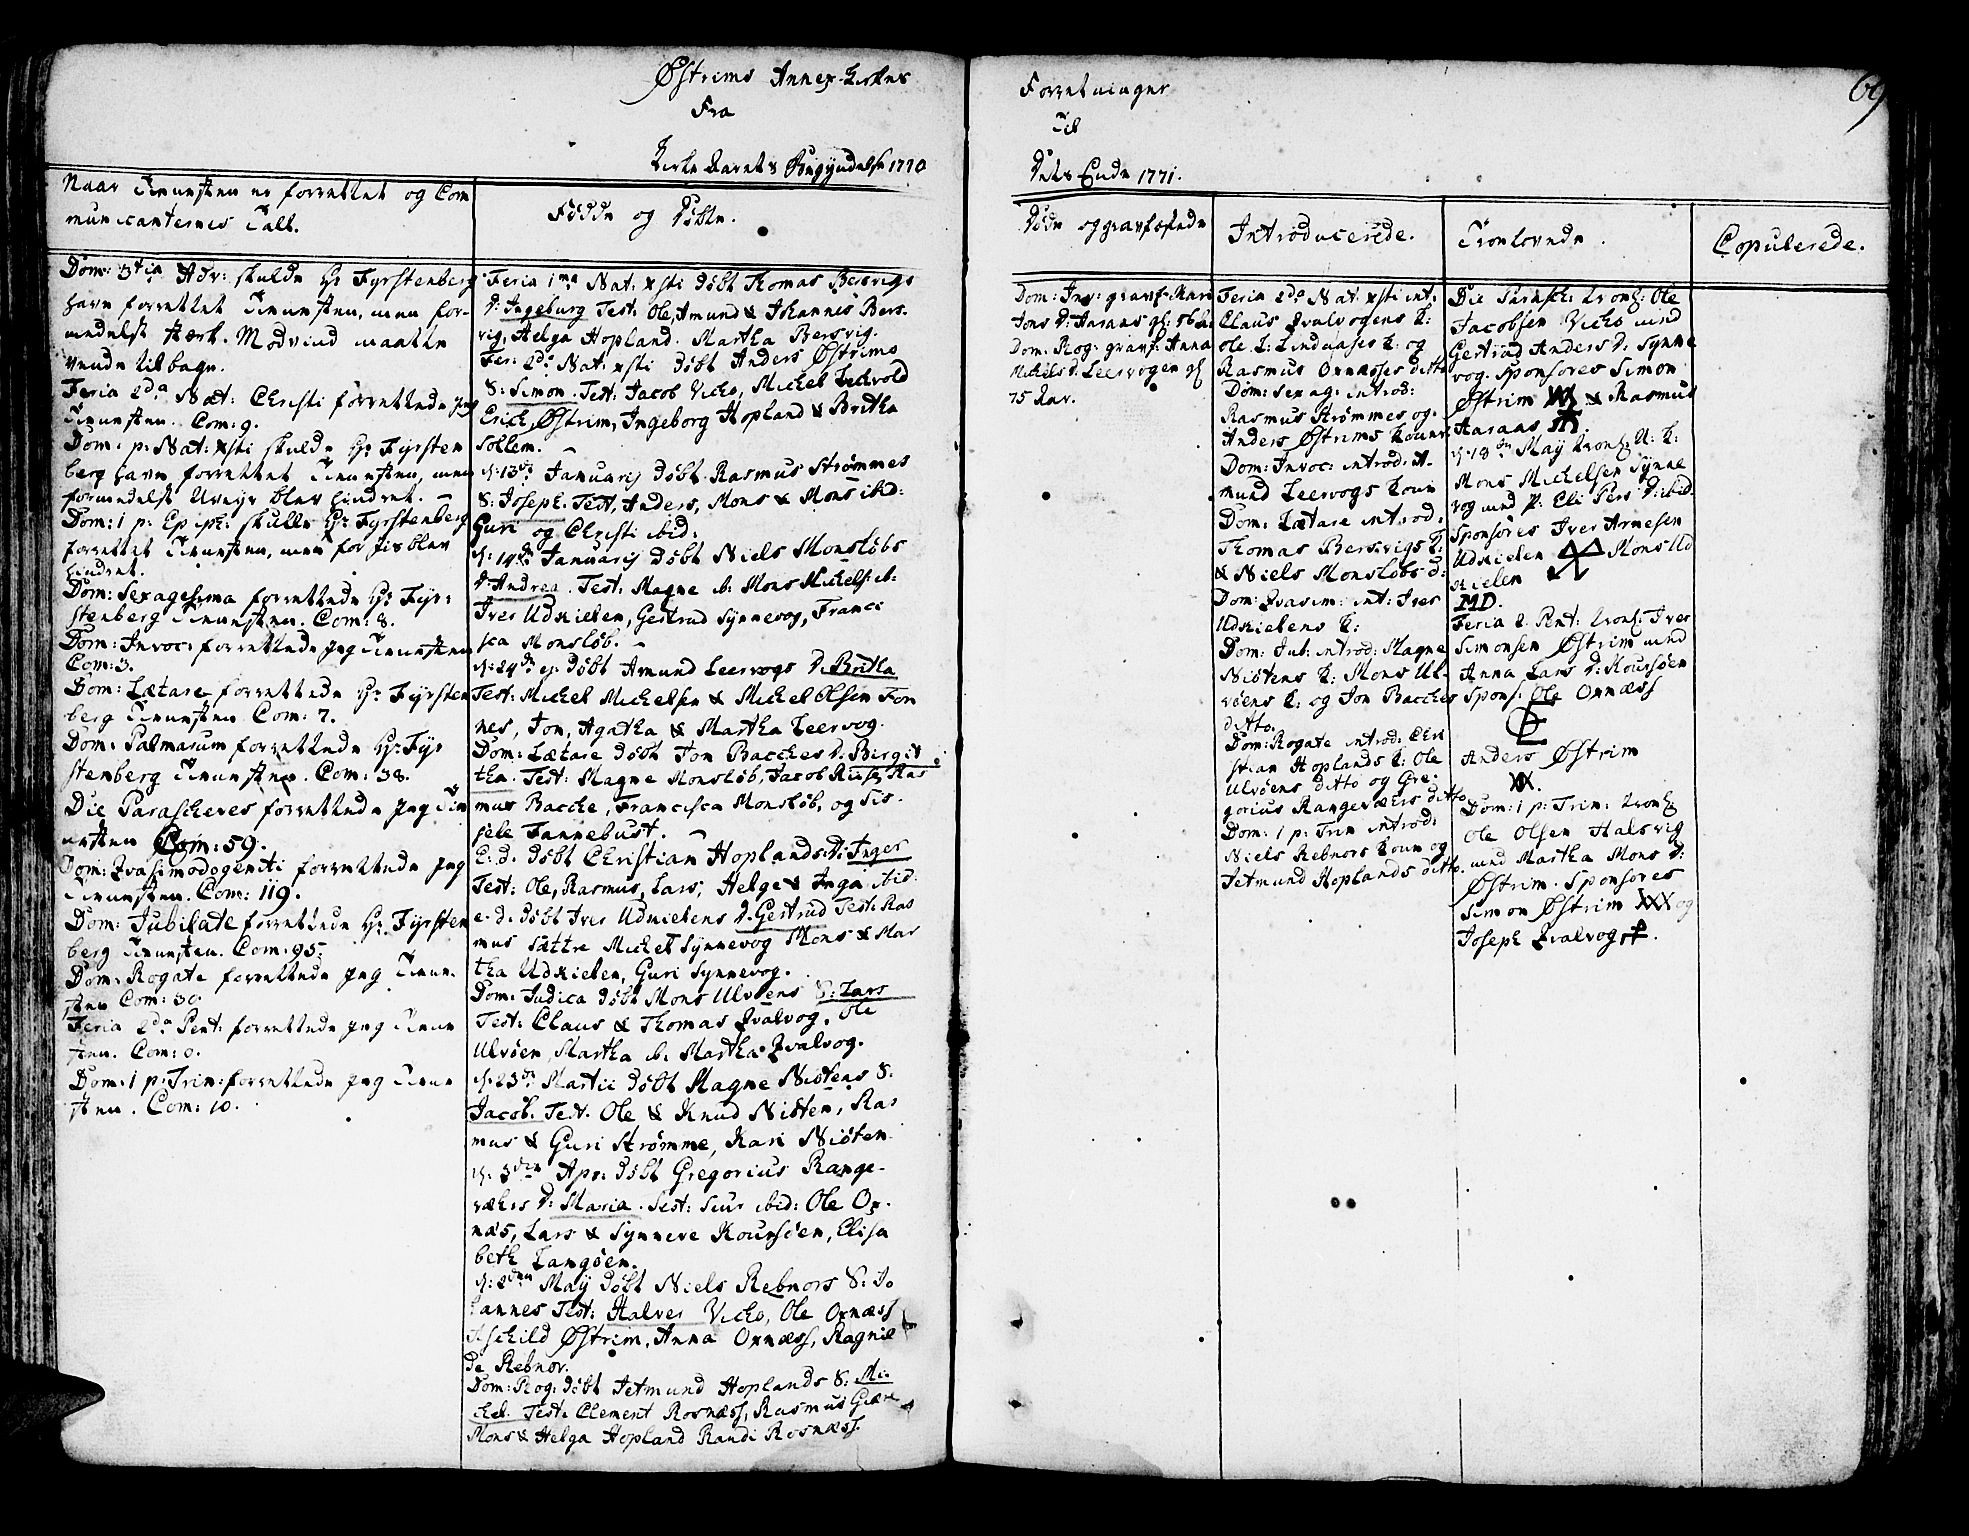 Østrims Annex-Kirkes
Fra
Kirke Aarets Begyndelse 1770
Naar Tienesten er forrettet og Com
municanternes Tall.
Dom: 3tia Adv: skulde Hr Fyrstenberg
have forrettet Tienesten, men for-
medelst stærk Modvind maatte
vende tilbage.
Feria 2da Nat: Christi forrettede jeg
Tienesten. Com: 9.
Dom: p: Nat: xsti skulde Hr Fyrsten
berg have forrettet Tienesten, men
formedelst Uveyr blev hindret.
Dom: 1 p: Epiph: skulle Hr Fyrstenberg
forrettet Tienesten, men for Jis blev
hindret.
Dom: Sexagesima forrettede Hr Fyr-
stenberg Tienesten. Com: 8.
Dom: Invoc: forrettede jeg Tienesten
Com: 3.
Dom: Lætare forrettede Hr Fyrsten
berg Tienesten Com: 7.
Dom: Palmarum forrettede Hr Fyr
stenberg Tienesten. Com: 38.
Die Parasceves forrettede jeg Tien
nesten Com: 59.
Dom: Qvasimodogeniti forrettede jeg
Tienesten. Com: 119.
Dom: Jubilate forrettede Hr Fyrsten
berg Tienesten. Com: 95.
Dom: Rogate forrettede jeg Tiene
sten Com: 30.
Feria 2da Pent: forrettede jeg Tiene
sten. Com: 0.
Dom: 1 p: Trin: forrettede jeg Tiene
sten. Com: 10.
Fødde og Døbte.
Feria 1ma Nat: xsti døbt Thomas Bersvigs
D: Ingeburg Test: Ole, Amund & Johannes Bers-
vig, Helga Hopland. Martha Bersvig.
Fer: 2da Nat: xsti døbt Anders Østrims
S: Simon. Test: Jacob Vicho, Michel
Erich Østrim, Ingeborg Hopland & Britha
Sollem.
d: 13de Januarij døbt Rasmus Strømmes
S: Joseph. Test, Anders, Mons & Mons ibid:
Guri og Christi ibid:
d: 14de Januarij døbt Niels Monsløbs
D: Andrea. Test: Magne ib: Mons Michels: ib:
Iver Udnielen, Gertrud Synnevog, Franci
sca Monsløb.
d: 24de ej: døbt Amund Leervogs D: Britha
Test: Michel Michelsen & Michel Olsen Fon
nes, Jon, Agatha & Martha Leervog.
Dom: Lætare døbt Jon Bacches D: Birgit
tha. Test: Magne Monsløb, Jacob Riise, Ras
mus Bacche, Francisca Monsløb, og Sis-
sele Fannebust.
E: d: døbt Christian Hoplands: D: Inger
Test: Ole, Rasmus, Lars, Helge & Inga ibid:
e: d: døbt Iver Udnielens D: Gertrud Test: Ras
mus Sættre Michel Synnevog Mons & Mar
tha Udnielen, Guri Synnevog.
Dom: Judica døbt Mons Ulvøens S: Lars
Test: Claus & Thomas Qvalvog, Ole
Ulvøen, Martha ib: Martha Qvalvog.
d: 23de Martii døbt Magne Nistens S:
Jacob. Test. Ole & Knud Nisten, Ras
mus & Guri Strømme, Kari Nisten.
d: 3den Apr: døbt Gregorius Range-
værs D: Maria. Test: Siur ibid: Ole Ox-
næs, Lars & Synneve Koursøen, Elisa
beth Langøen.
d: 2den May døbt Niels Rebnors S: Jo
hannes Test: Halver Vicho, Ole Oxnæss
Eschild Østrim, Anna Oxnæss, Ragnil
de Rebnor.
Dom: Rog: døbt Jetmund Hoplands S: Mi-
chel. Test. Clement Rosnæss, Rasmus
Mons & Helga Hopland Randi Rosnæss.
Forretninger
Til
Dets Ende 1771.
69
Døde og gravfæstede
Dom: Inv: gravf: Mari
Jons D: Aaraas gl: 56
Dom: Rog: gravf: Anna
Michels D: Leervogen gl
75 Aar.
Introducerede.
Feria 2da Nat xsti int:
Claus Qvalvogens K:
Ole L: Lindaases K: og
Rasmus Oxnæsses ditto
Dom: Sexag: introd:
Rasmus Strømmes og
Anders Østrims Koner
Dom: Invoc: introd: A-
mund Leervogs Kone
Dom: Lætare introd:
Thomas Bersvigs K:
& Niels Monsløbs d:
Dom: Qvasim: int: Iver
Udnielens K:
Dom: Jub: introd: Magne
Nistens K: Mons Ul-
vøens K: og Jon Bacches
ditto.
Dom: Rogate introd: Chri
stian Hoplands K: Ole
Ulvøens ditto og Gre-
gorius Rangeværs ditto
Dom: 1 p: Trin introd:
Niels Rebnors Kone og
Jetmund Hoplands ditto.
Troelovede.
Die Parasc: trol: Ole
Jacobsen Vicho med
Gertrud Anders D: Synne
vog. Sponsores Simon
Østrim & Rasmus
Aaraas
d: 18de May trol: U: K:
Mons Michelsen Synne
vog med P: Eli Pers D: ibid.
Sponsores Iver Arnesen
Udnielen Mons Ud
nielen
MD.
Feria 2 Pent: trol: Iver
Simonsen Østrim med
Anna Lars D: Koursøen
Spons: Ole Oxnæss
Anders Østrim
Dom: 1 p: Trin: trol:
Ole Olsen Halsvig
med Martha Mons D:
Østrim. Sponsores
Simon Østrim XXX og
Joseph Qvalvog
Copulerede.